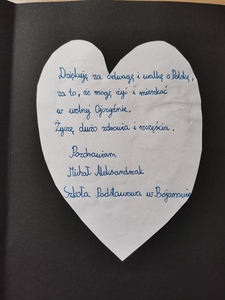 Dziękuję za odwagę i walkę o Polskę,
za to, że mogę żyć i mieszkać
w wolnej Ojczyźnie.
Życzę dużo zdrowia i szczęścia.
Pozdrawiam
Michał Aleksandrzak
Szkoła Podstawowa w Bojanowie